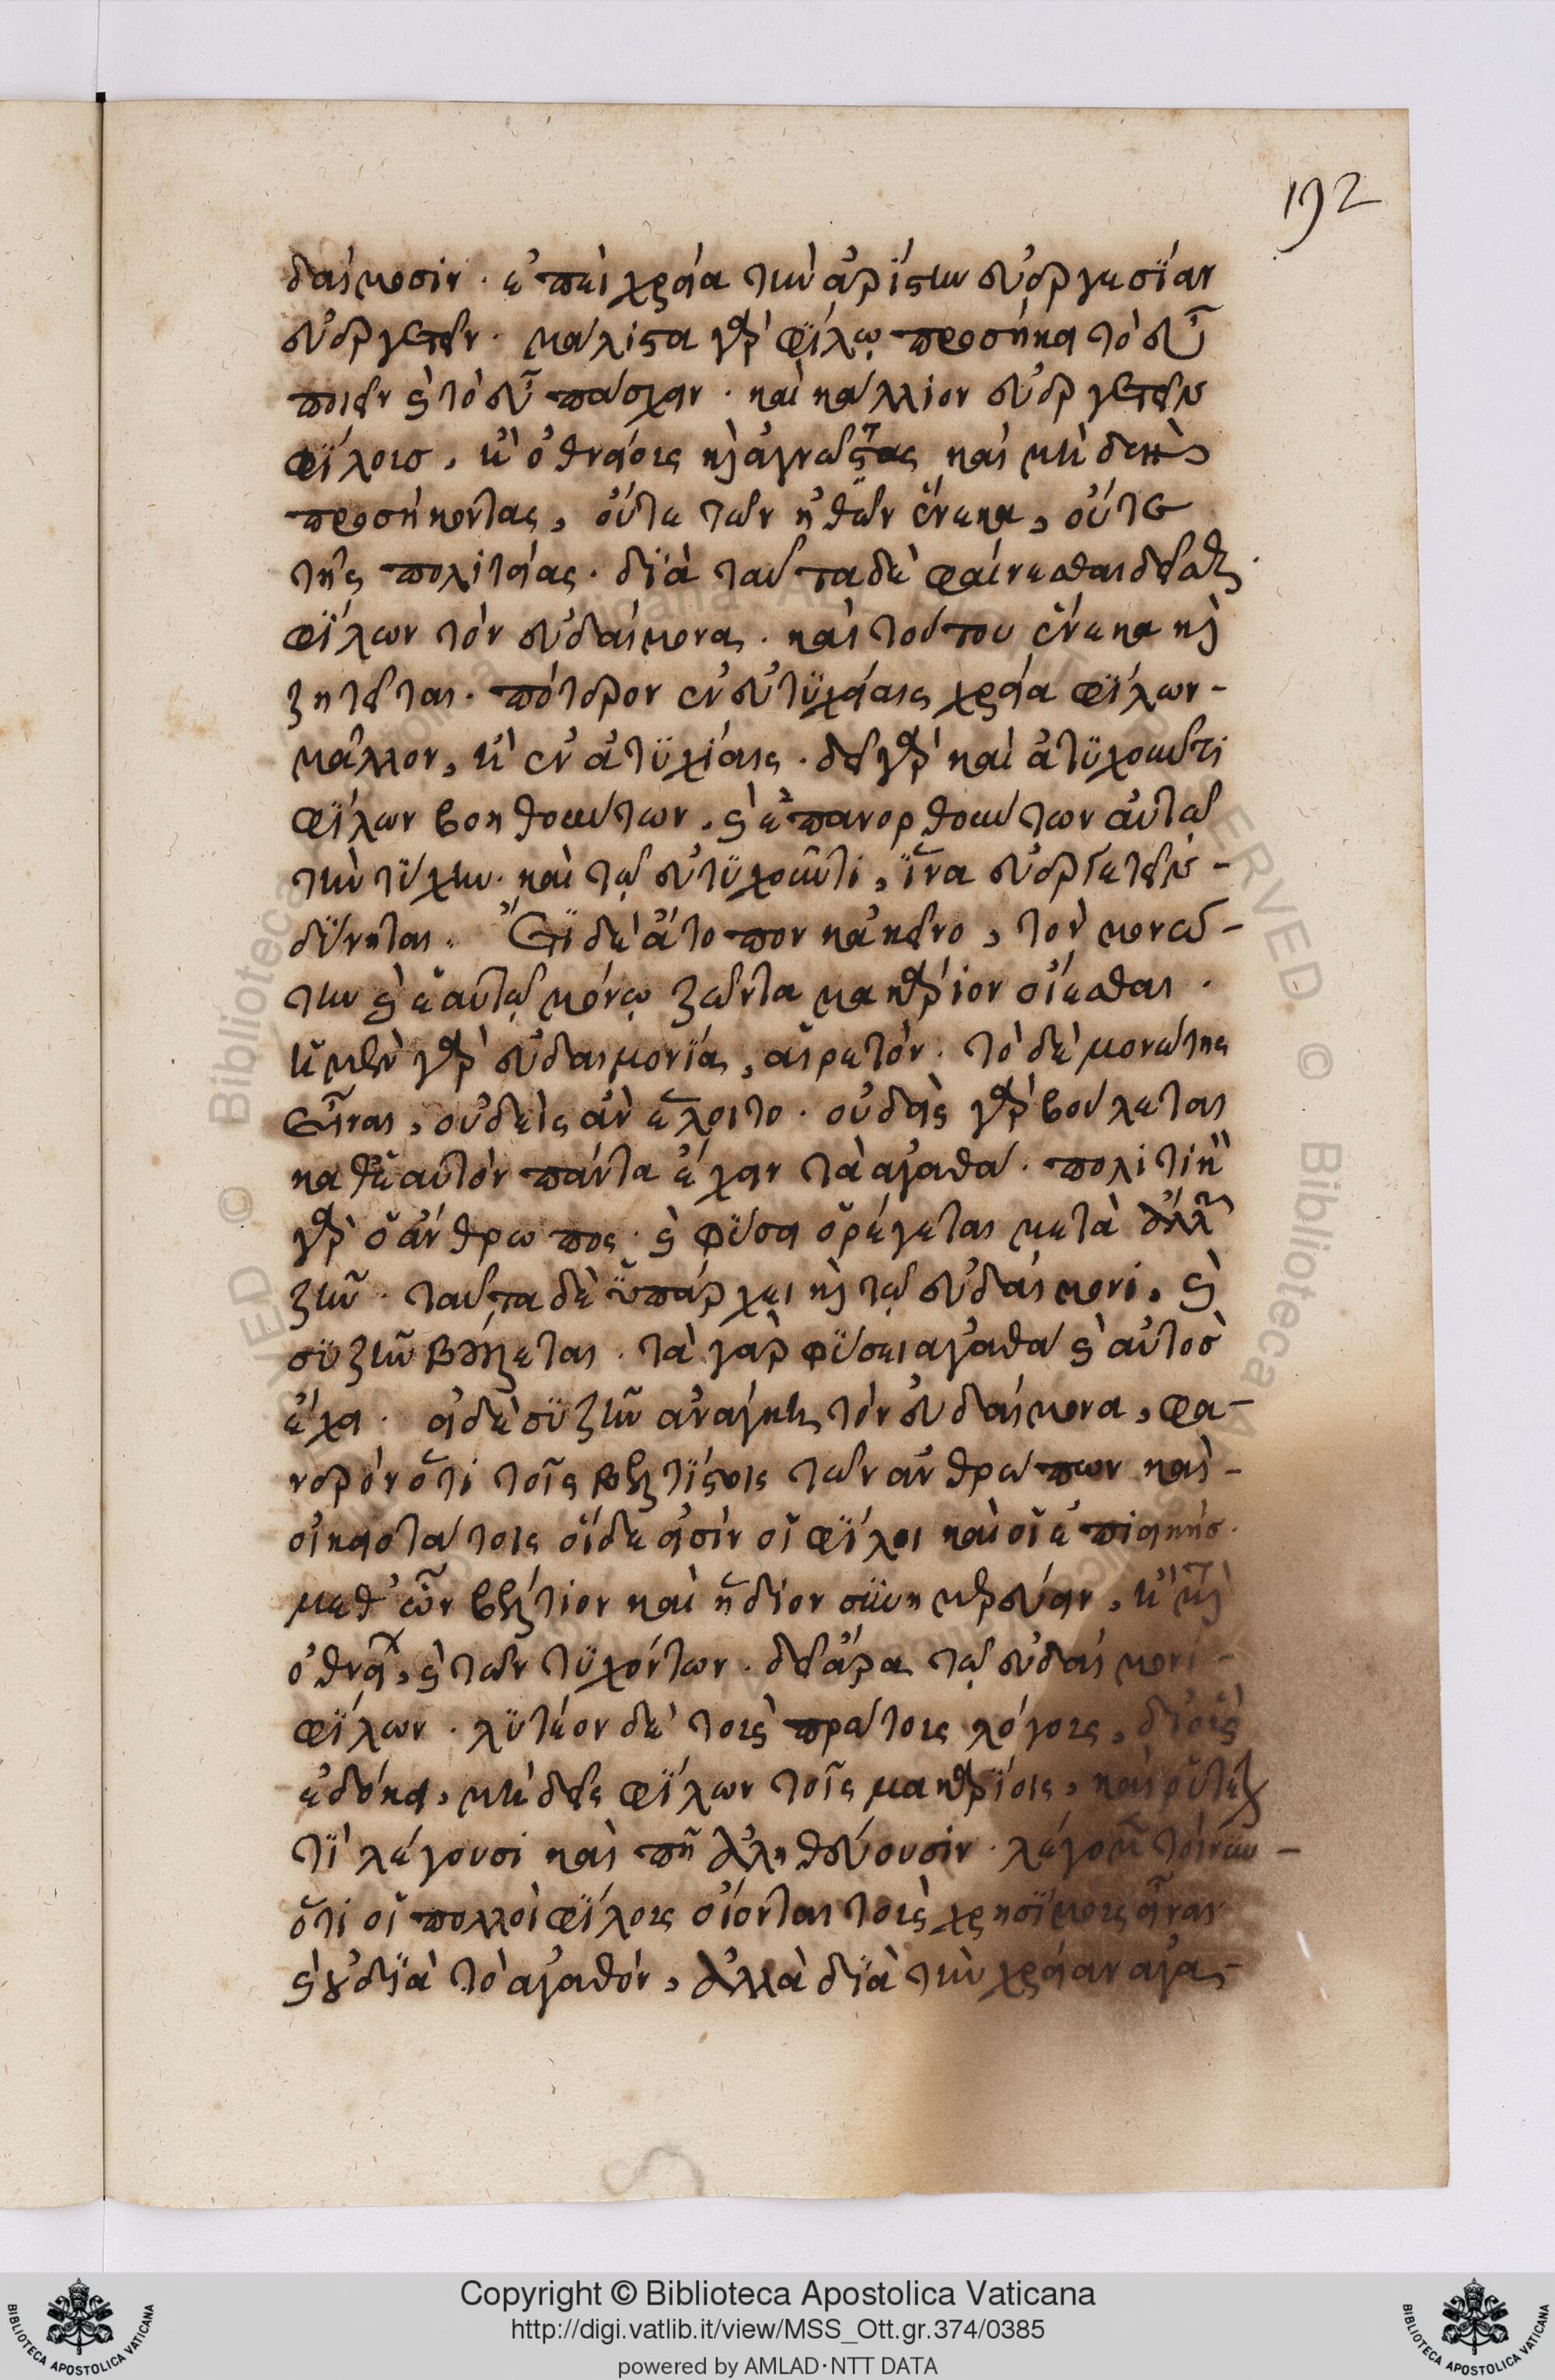 192
δαίμοσιν. ἐπεὶ χρεία τὴν ἀρίστην εὐεργεσίαν
εὐεργετεῖν. μάλιστα γὰρ φίλῳ προσήκει τὸ εὖ
ποιεῖν ἢ τὸ εὖ πάσχειν. καὶ κάλλιον εὐεργετεῖν
φίλους, ἢ ὀθνείους καὶ ἀγνῶτας καὶ μὴ
προσήκοντας, οὔτε τῶν ἠθῶν ἕνεκα, οὔτε
τῆς πολιτείας. διὰ ταῦτα δὲ φαίνεσθαι δεῖσθαι
φίλων τὸν εὐδαίμονα. καὶ τούτου ἕνεκα καὶ
ζητεῖται. πότερον ἐν εὐτυχίαις χρεία φίλων-
μᾶλλον, ἢ ἐν ἀτυχίαις. δεῖ γὰρ καὶ ἀτυχοῦντι
φίλων βοηθούντων, καὶ ἐπανορθούντων αὐτῷ
τὴν τύχην. καὶ τῷ εὐτυχοῦντι, ἵνα εὐεργετεῖν-
δύνηται. Ἔτι δὲ ἄτοπον κἀκεῖνο, τὸν μονώ-
την καὶ ἑαυτῷ μόνῳ ζῶντα μακάριον οἴεσθαι.
ἡ μὲν γὰρ εὐδαιμονία, αἱρετόν. τὸ δὲ μονώτης
εἶναι, οὐδεὶς ἂν ἕλοιτο. οὐδεὶς γὰρ βούλεται
καθ' ἑαυτὸν πάντα ἔχειν τὰ ἀγαθά. πολιτικὸν
γὰρ ὁ ἄνθρωπος. καὶ φύσει ὀρέγεται μετὰ ἄλλων
ζῆν. ταῦτα δὲ ὑπάρχει καὶ τῷ εὐδαίμονι, καὶ
συζῆν βούλεται. τὰ γὰρ φύσει ἀγαθὰ καὶ αὐτὸς
ἔχει. εἰ δὲ συζῆν ἀνάγκη τὸν εὐδαίμονα, φα-
νερὸν ὅτι τοῖς βελτίστοις τῶν ἀνθρώπων καὶ-
οἰκειοτάτοις οἵδε εἰσὶν οἱ φίλοι καὶ οἱ ἐπιεικεῖς.
μεθ' ὧν βέλτιον καὶ ἥδιον συνημερεύειν, ἢ μετὰ
ὀθνείων, καὶ τῶν τυχόντων. δεῖ ἄρα τῷ εὐδαίμονι-
φίλων. λυτέον δὲ τοὺς πρώτους λόγους, δι' οὓς
ἐδόκει, μὴ δεῖν φίλων τοῖς μακαρίοις, καὶ
τί λέγουσι καὶ πῆ ἀληθεύουσιν. λέγομεν τοίνυν-
ὅτι οἱ πολλοὶ φίλους οἴονται τοὺς χρησίμους εἶναι
καὶ οὐ διὰ τὸ ἀγαθόν, ἀλλὰ διὰ τὴν χρείαν ἀγα-
Copyright © Biblioteca Apostolica Vaticana
http://digi.vatlib.it/view/MSS_Ott.gr.374/0385
powered by AMLAD·NTT DATA
BIBLIOTECA APOSTOLICA VATICANA
BIBLIOTECA APOSTOLICA VATICANA